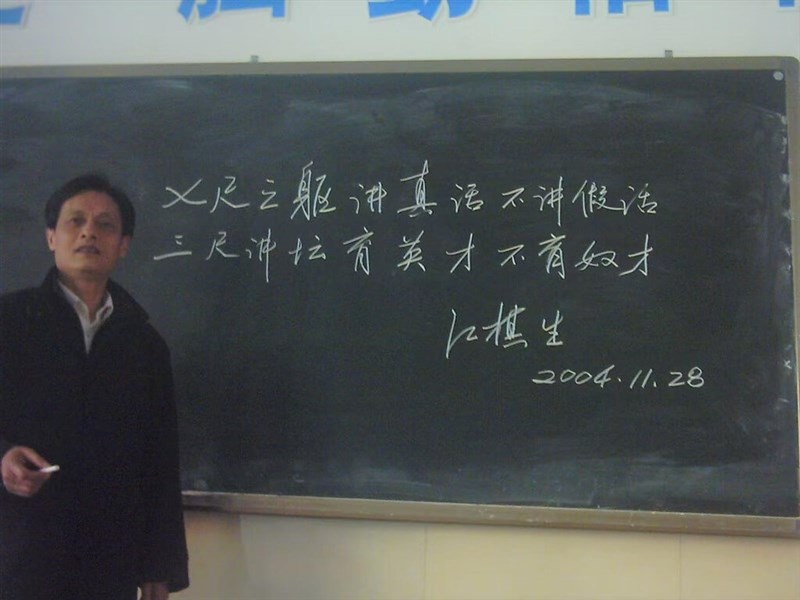 七尺之躯讲真话不讲假话
三尺讲坛育英才不育奴才
江棋生
2004.11.28